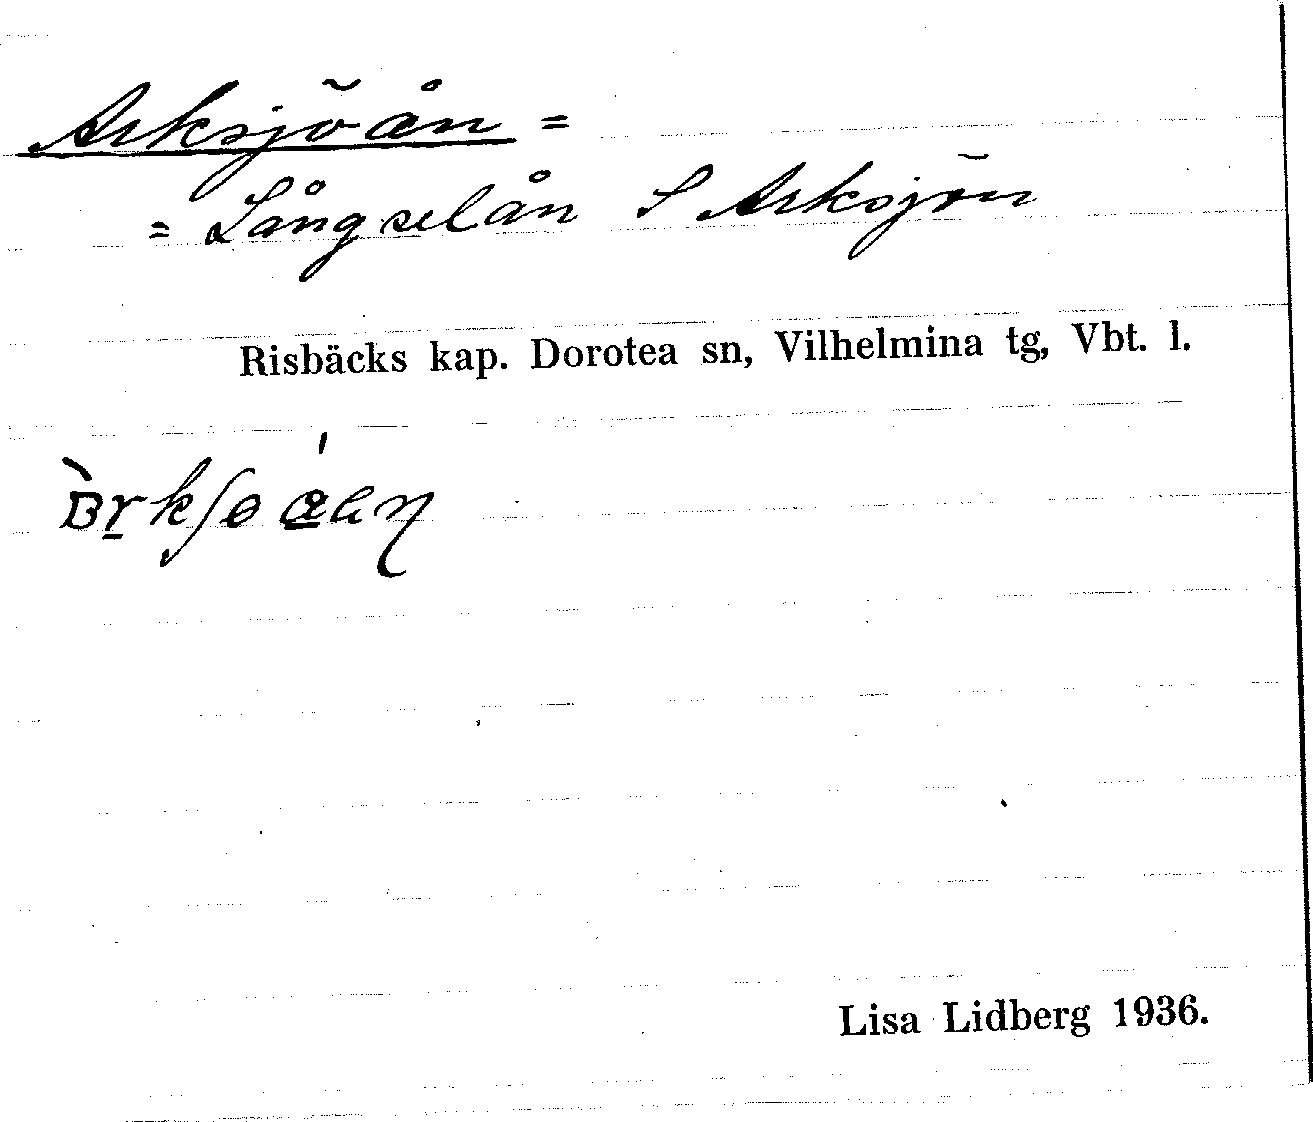 Arksjöån =
= Långselån S Arksjön
Risbäcks kap. Dorotea sn, Vilhelmina tg, Vbt. l.
Lisa Lidberg 1936.